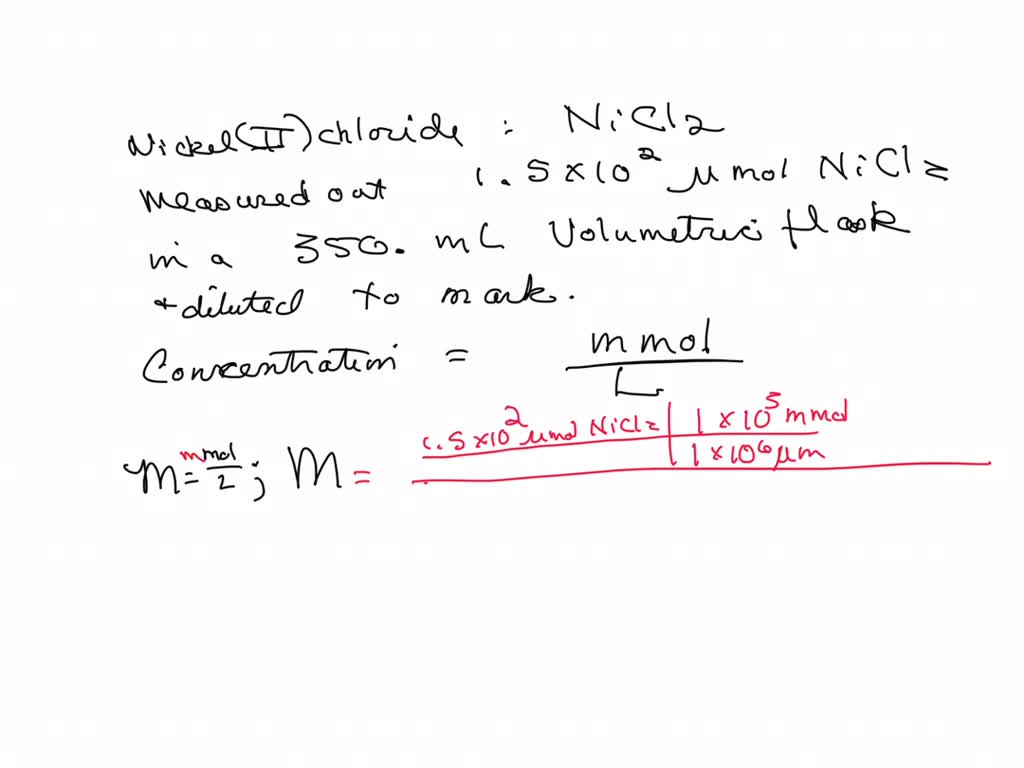 Nickel(II) chloride : NiCl2
measured out 1.5 x 10² μmol NiCl2
in a 350. mL Volumetric flask
+ diluted to mark.
Concentration = mmol
L
1.5 x 10² μmol NiCl2 | 1 x 10³ mmol
1 x 10⁶ μm
M = mmol/L ; M =